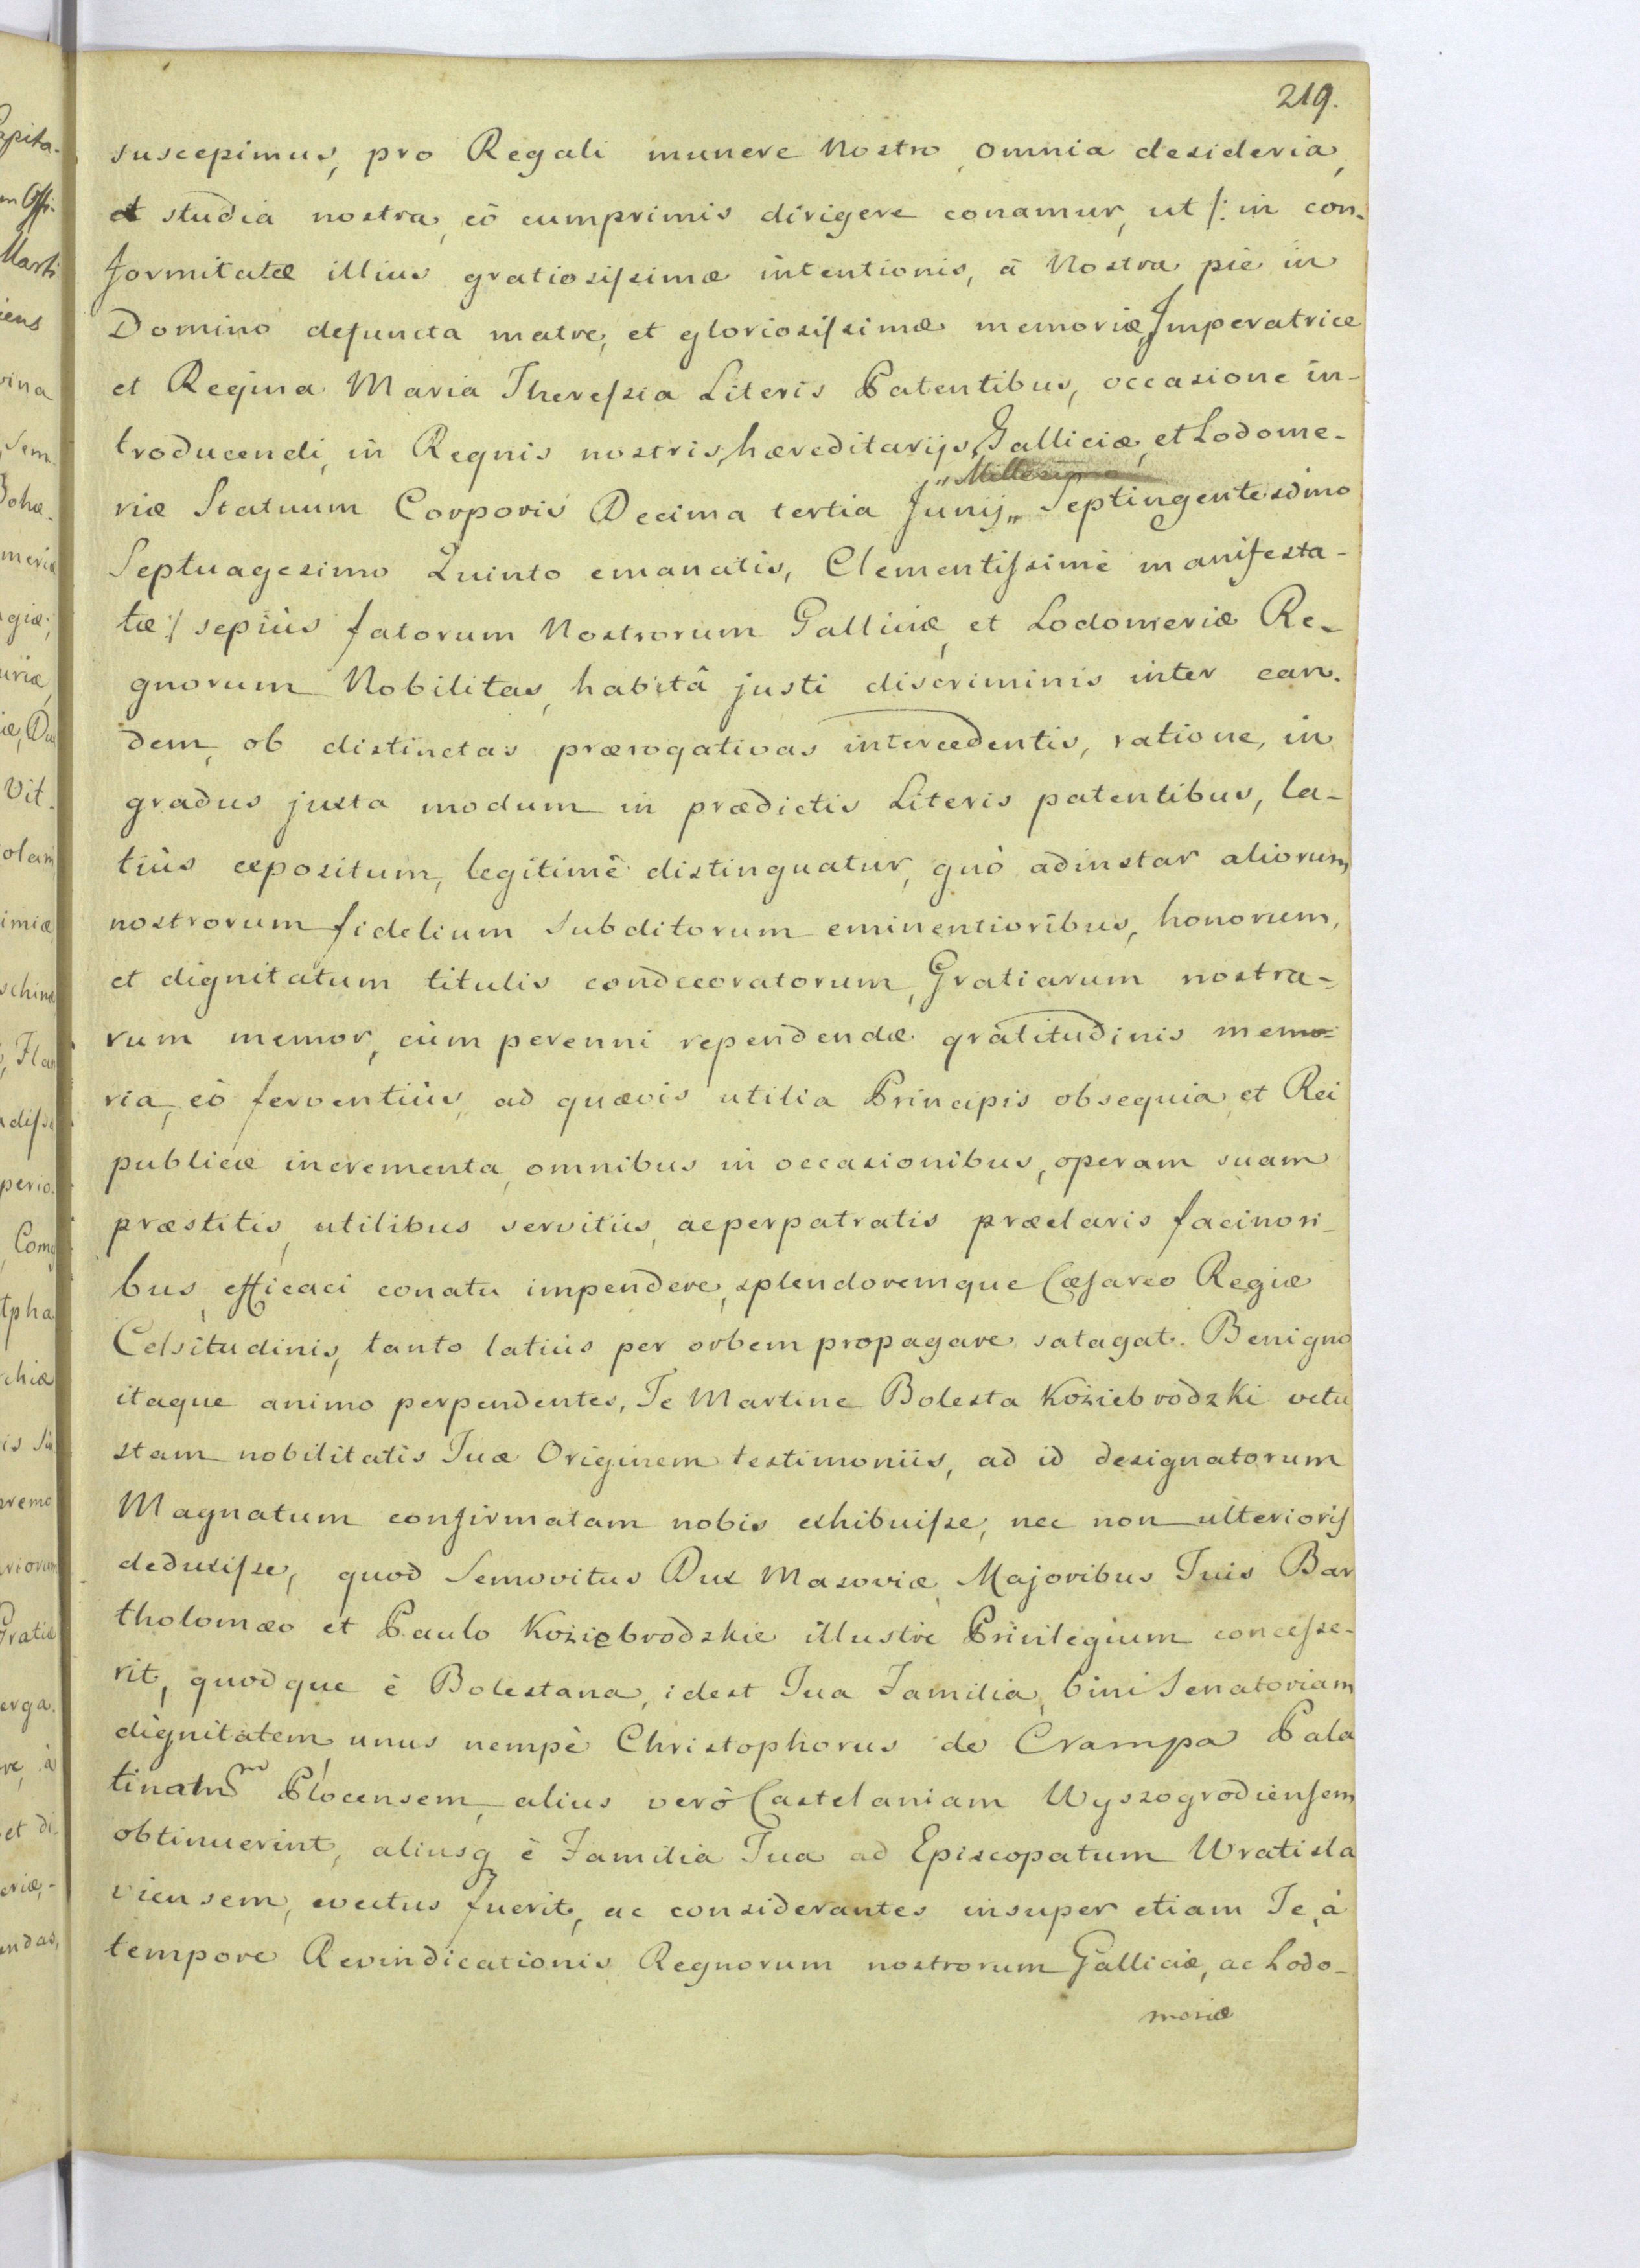 219.
suscepimus, pro Regali munere Nostro, omnia desideria,
et studia nostra, eò cumprimis dirigere conamur, ut /: in con-
formitatæ illius gratiosissimæ intentionis, à Nostra pie in
Domino defuncta matre, et gloriosissimæ memoriæ, Imperatrice
et Regina Maria Theressia Literis Patentibus, occasione in-
troducendi, in Regnis nostris, hæreditarijs, Galliciæ, et Lodome-
" Millesimo
riæ Statuum Corporis Decima tertia Junij „ Septingentesimo
Septuagesimo Quinto emanatis, Clementissimè manifesta-
tæ :/ sepiùs fatorum Nostrorum Galliciæ, et Lodomeriæ Re-
gnorum Nobilitas, habitâ justi discriminis inter ean-
dem, ob distinctas prærogativas intercedentis, ratione, in
gradus juxta modum in prædictis Literis patentibus, la-
tiùs expositum, legitimè distinguatur, quò adinstar aliorum
nostrorum fidelium subditorum eminentioribus, honorum,
et dignitatum titulis condecoratorum, Gratiarum nostra-
rum memor, cùm perenni rependendæ gratitudinis memo-
ria, eò ferventiùs, ad quævis utilia Principis obsequia, et Rei
publicæ incrementa, omnibus in occasionibus, operam suam
præstitis, utilibus servitiis, acperpatratis præclaris facinori-
bus, efficaci conatu impendere, splendoremque Cæsareo Regiæ
Celsitudinis, tanto latiùs per orbem propagare satagat. Benigno
itaque animo perpendentes, Te Martine Bolesta Koziebrodzki vetu
stam nobilitatis Tuæ Originem testimoniis, ad id designatorum
Magnatum confirmatam nobis exhibuisse, nec non ulterioris
deduxisse, quod Semovitus Dux Masoviæ, Majoribus Tuis Bar
tholomæo et Paulo Koziebrodzkie illustre Privilegium concesse-
rit, quodque è Bolestana, idest Tua Familia, bini Senatoriam
dignitatem unus nempè Christophorus de Crampa Pala
tinatum Plocensem, alius verò Castelaniam Wyszogrodiensem
obtinuerint, aliusq è Familia Tua ad Episcopatum Wratisla
viensem, evectus fuerit, ac considerantes insuper etiam Te, à
tempore Revindicationis Regnorum nostrorum Galliciæ, ac Lodo-
meriæ